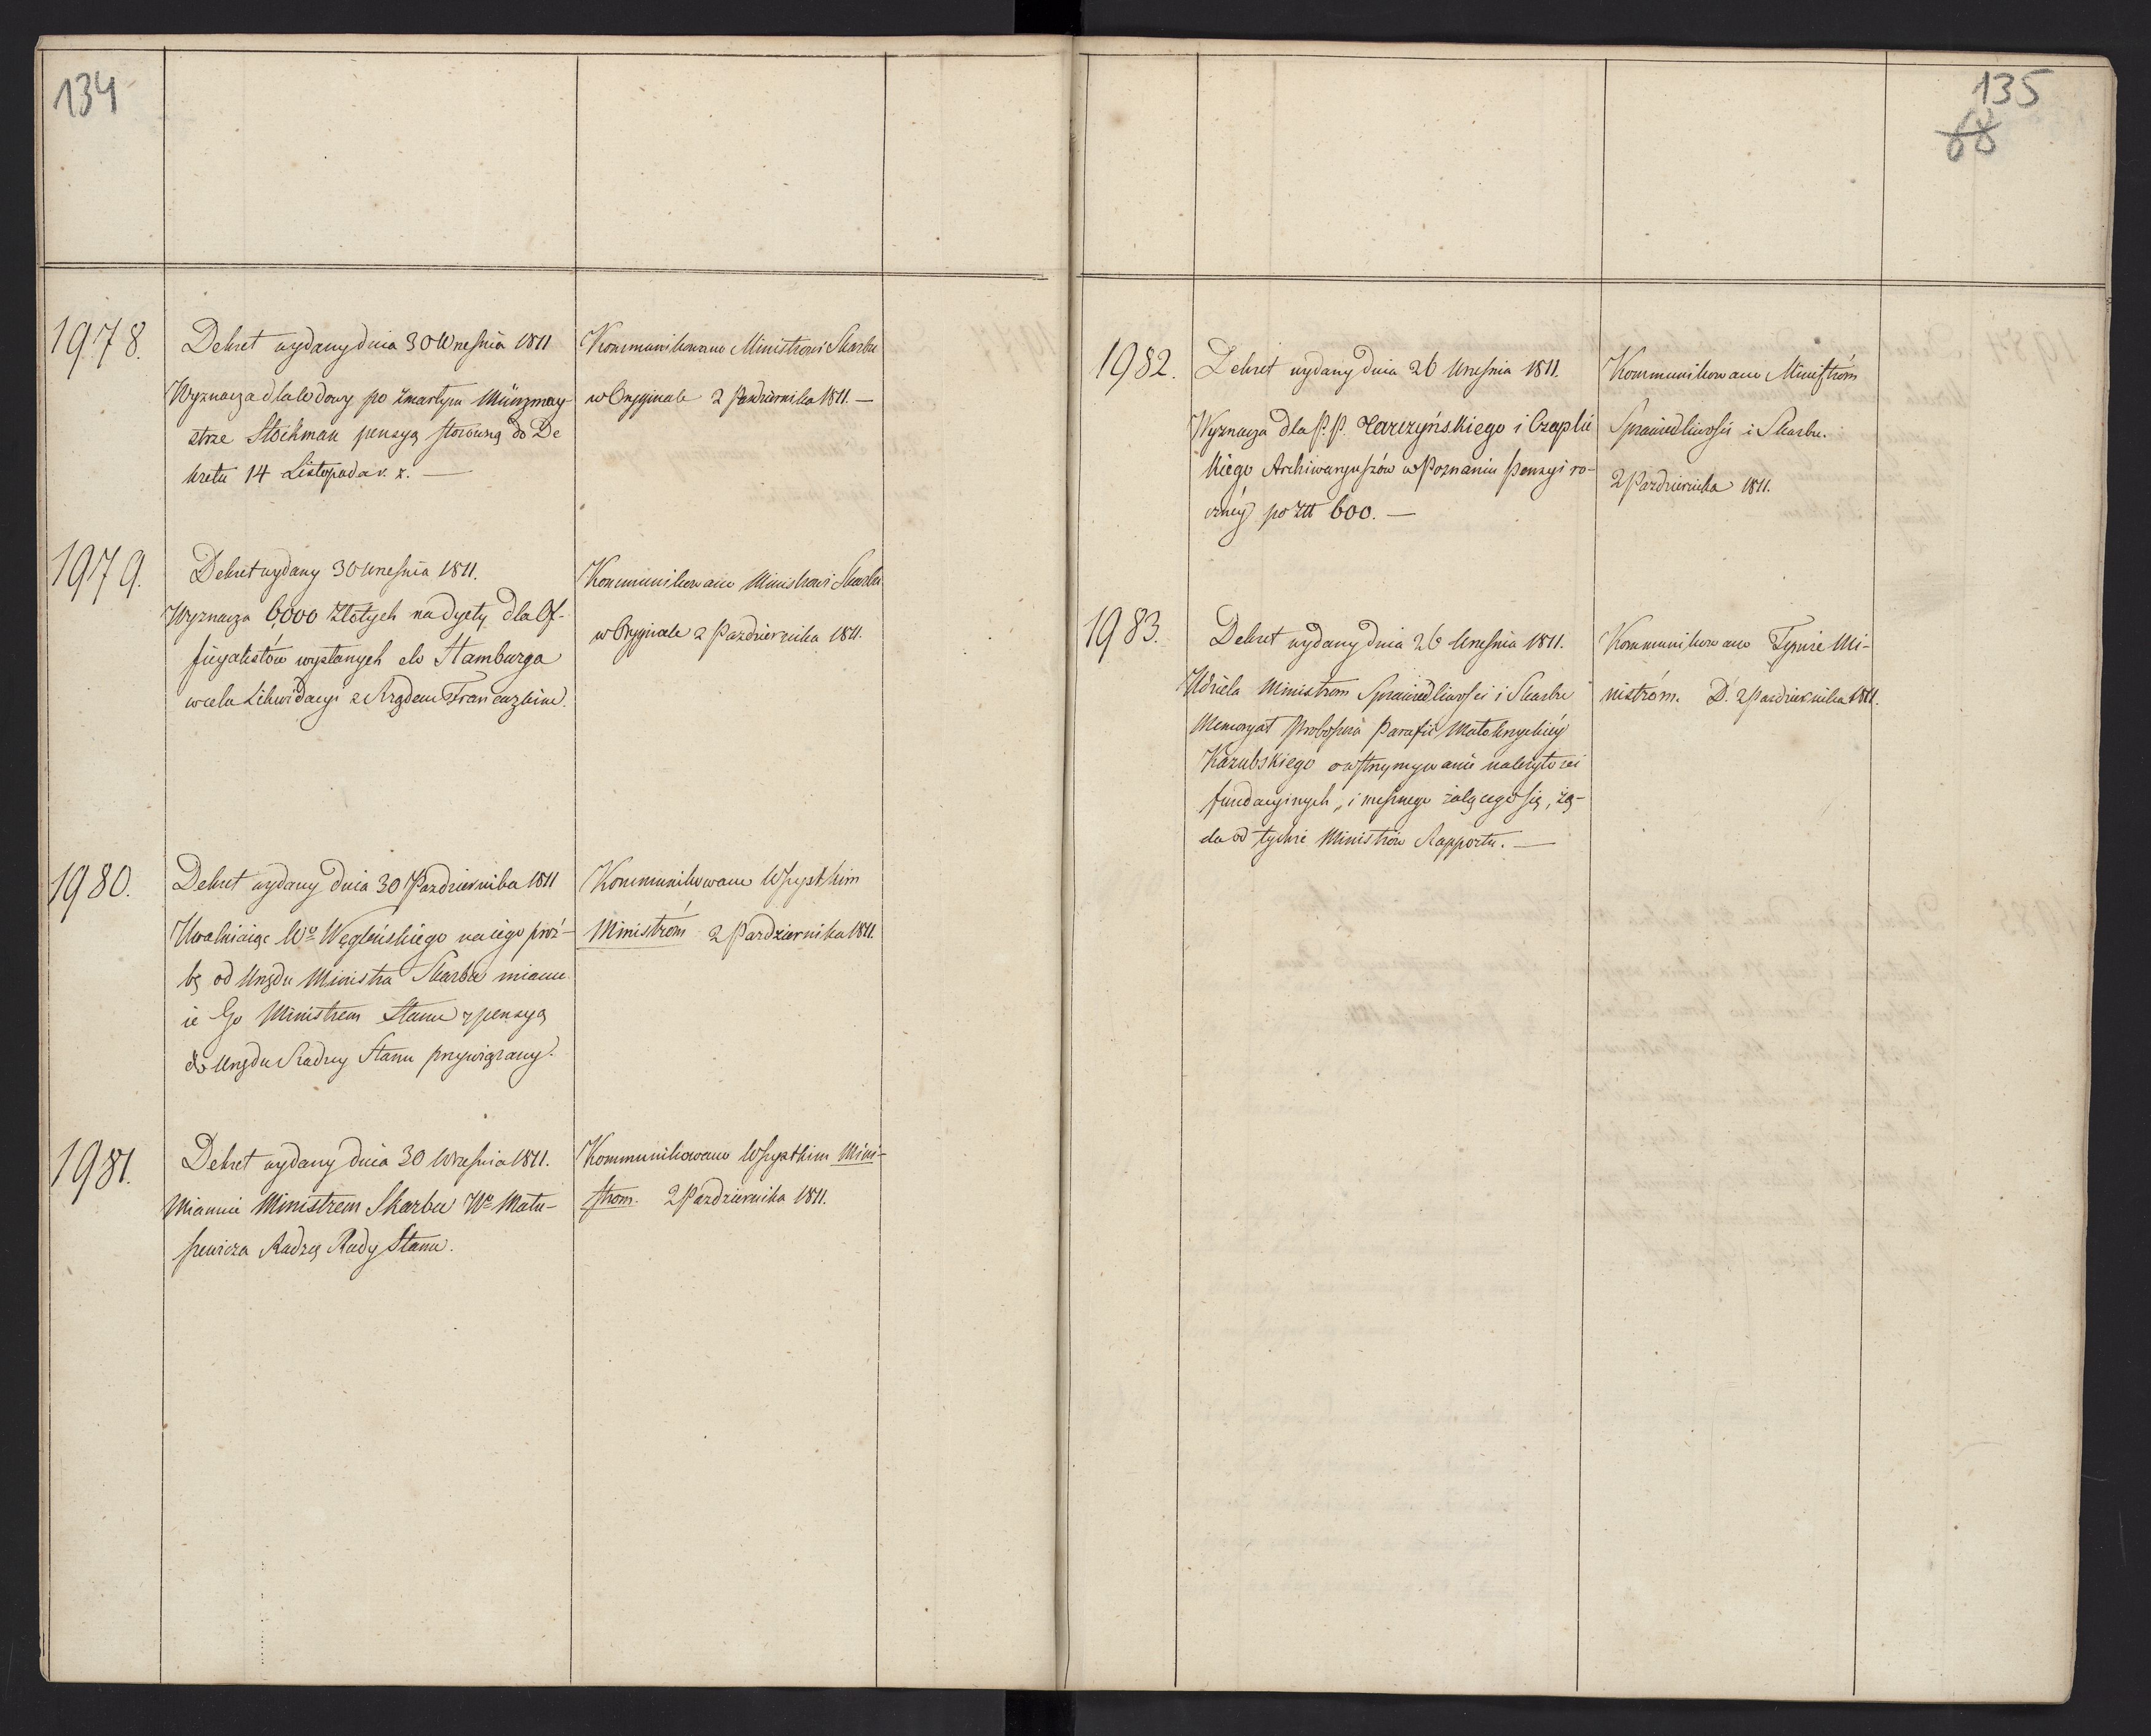 134
1978.
Dekret wydany dnia 30 Wresnia 1811
Wyznacza dla Wdowy po zmarłym Münzmay-
strze Stockman pensyą stosowną do De
kretu 14 Listopada r. z. —
Kommunikowano Ministrowi Skarbu
w Oryginale 2 Pazdziernika 1811. —
1979.
Dekret wydany 30 Wresnia 1811.
Wyznacza 6,000 Złotych na dyety dla Of-
ficyalistów wysłanych do Hamburga
w celu Likwidacyi z Rządem Francuzkim.
Kommunikowano Ministrowi Skarbu
w Oryginale 2 Pazdziernika 1811.
1980.
Dekret wydany dnia 30 Pazdziernika 1811
Uwalniaiąc Wo Węgleńskiego na iego proź-
bę od Urzędu Ministra Skarbu mianu
ie Go Ministrem Stanu z pensyą
do Urzędu Radzcy Stanu przywiązaną.
Kommunikowano Wszystkim
Ministróm 2 Pazdziernika 1811.
1981.
Dekret wydany dnia 30 Wrzesnia 1811.
Mianuie Ministrem Skarbu Wo Matu-
szewicza Radzcę Rady Stanu.
Kommunikowano Wszystkim Mini-
strom. 2 Pazdziernika 1811.
135
68
1982.
Dekret wydany dnia 26 Wresnia 1811.
Wyznacza dla P. P. Zarczyńskiego i Czaplic
kiego Archiwaryuszów w Poznaniu pensyi ro-
czney po Złł 600. —
Kommunikowano Ministróm
Sprawiedliwości i Skarbu.
2 Pazdziernika 1811.
1983.
Dekret wydany dnia 26 Wresnia 1811.
Udziela Ministrom Sprawiedliwości i Skarbu
Memoryał Proboszcza Parafii
Kazubskiego o wstrzymywanie należytości
fundacyinych, i mesznego żalącego się, żą-
da od tychże Ministrów Rapportu. —
Kommunikowano Tymże Mi-
nistróm. D. 2 Pazdziernika 1811.